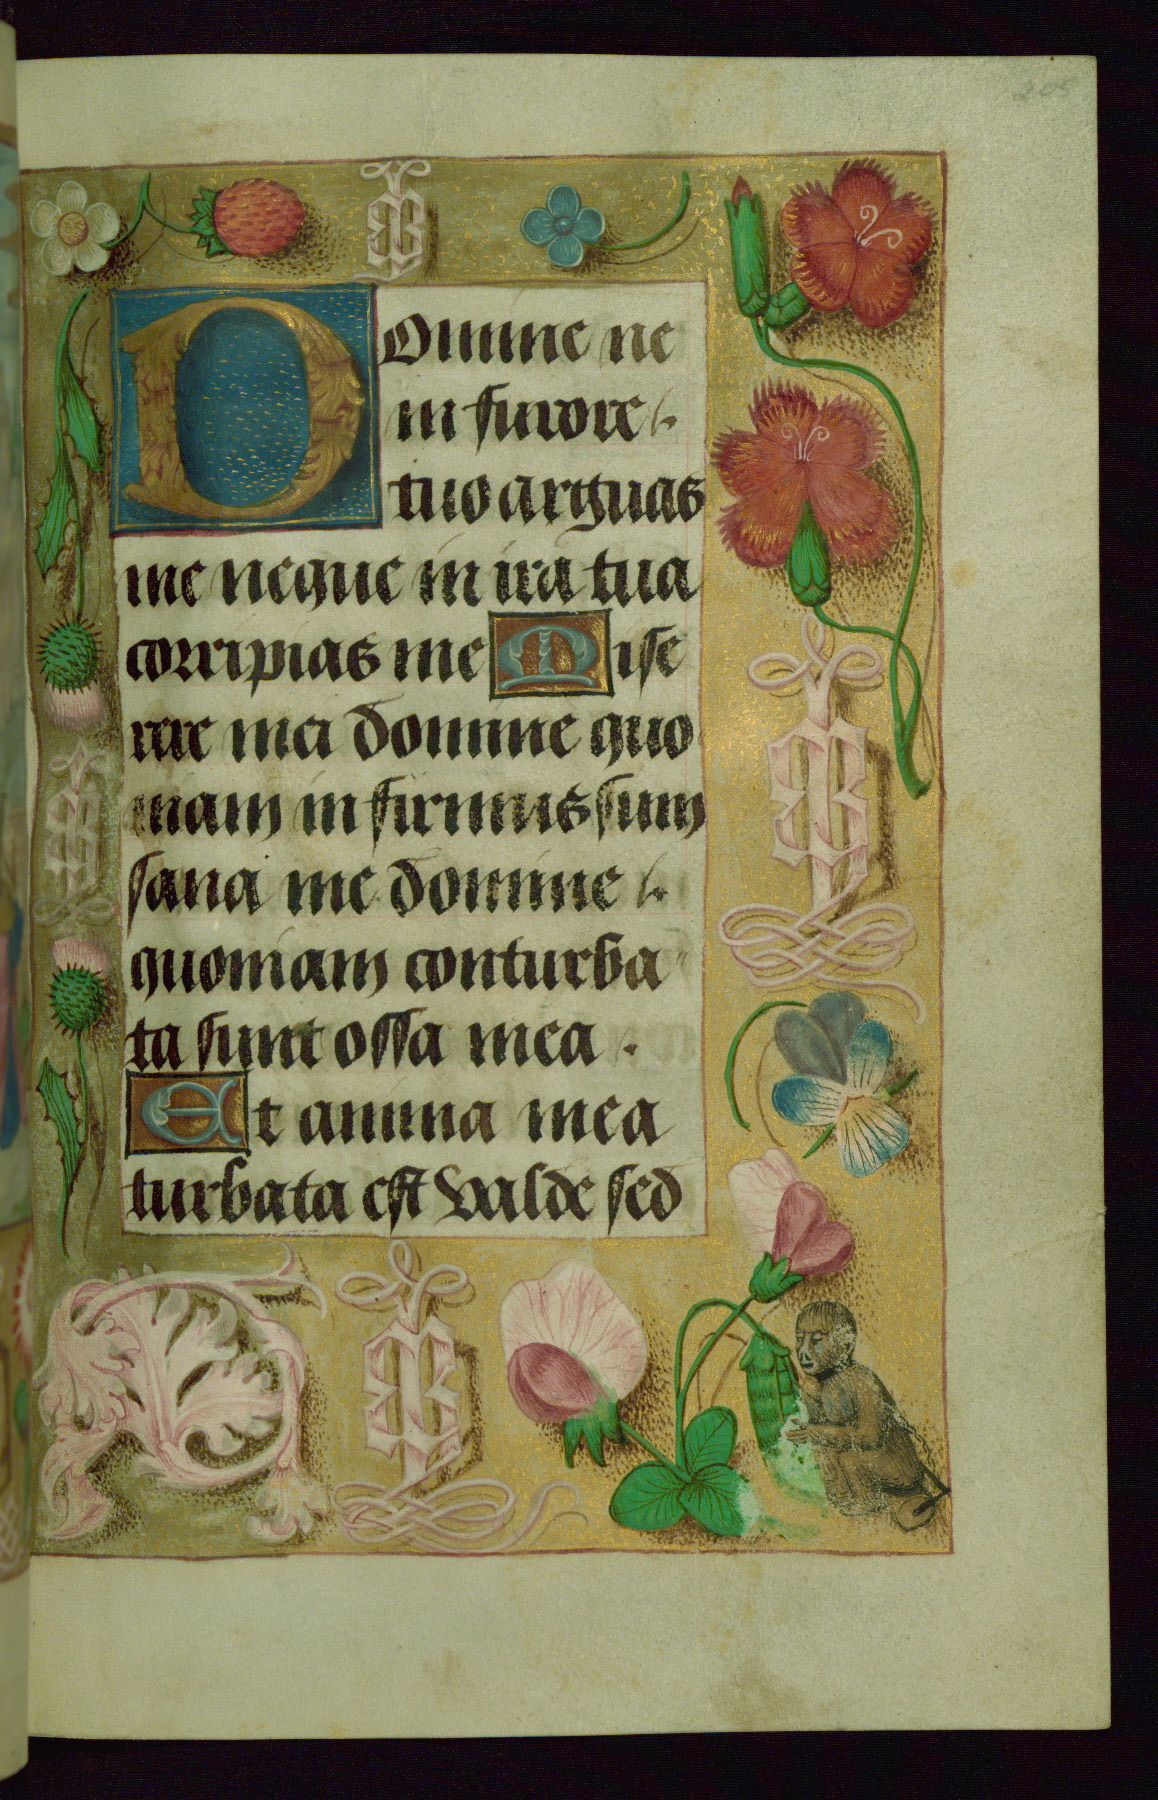 205
Domine ne
in furore
tuo arguas
me neque in ira tua
corripias me Mise
rere mei domine quo
niam infirmus sum
sana me domine
quoniam conturba
ta sunt ossa mea .
Et anima mea
turbata est valde sed